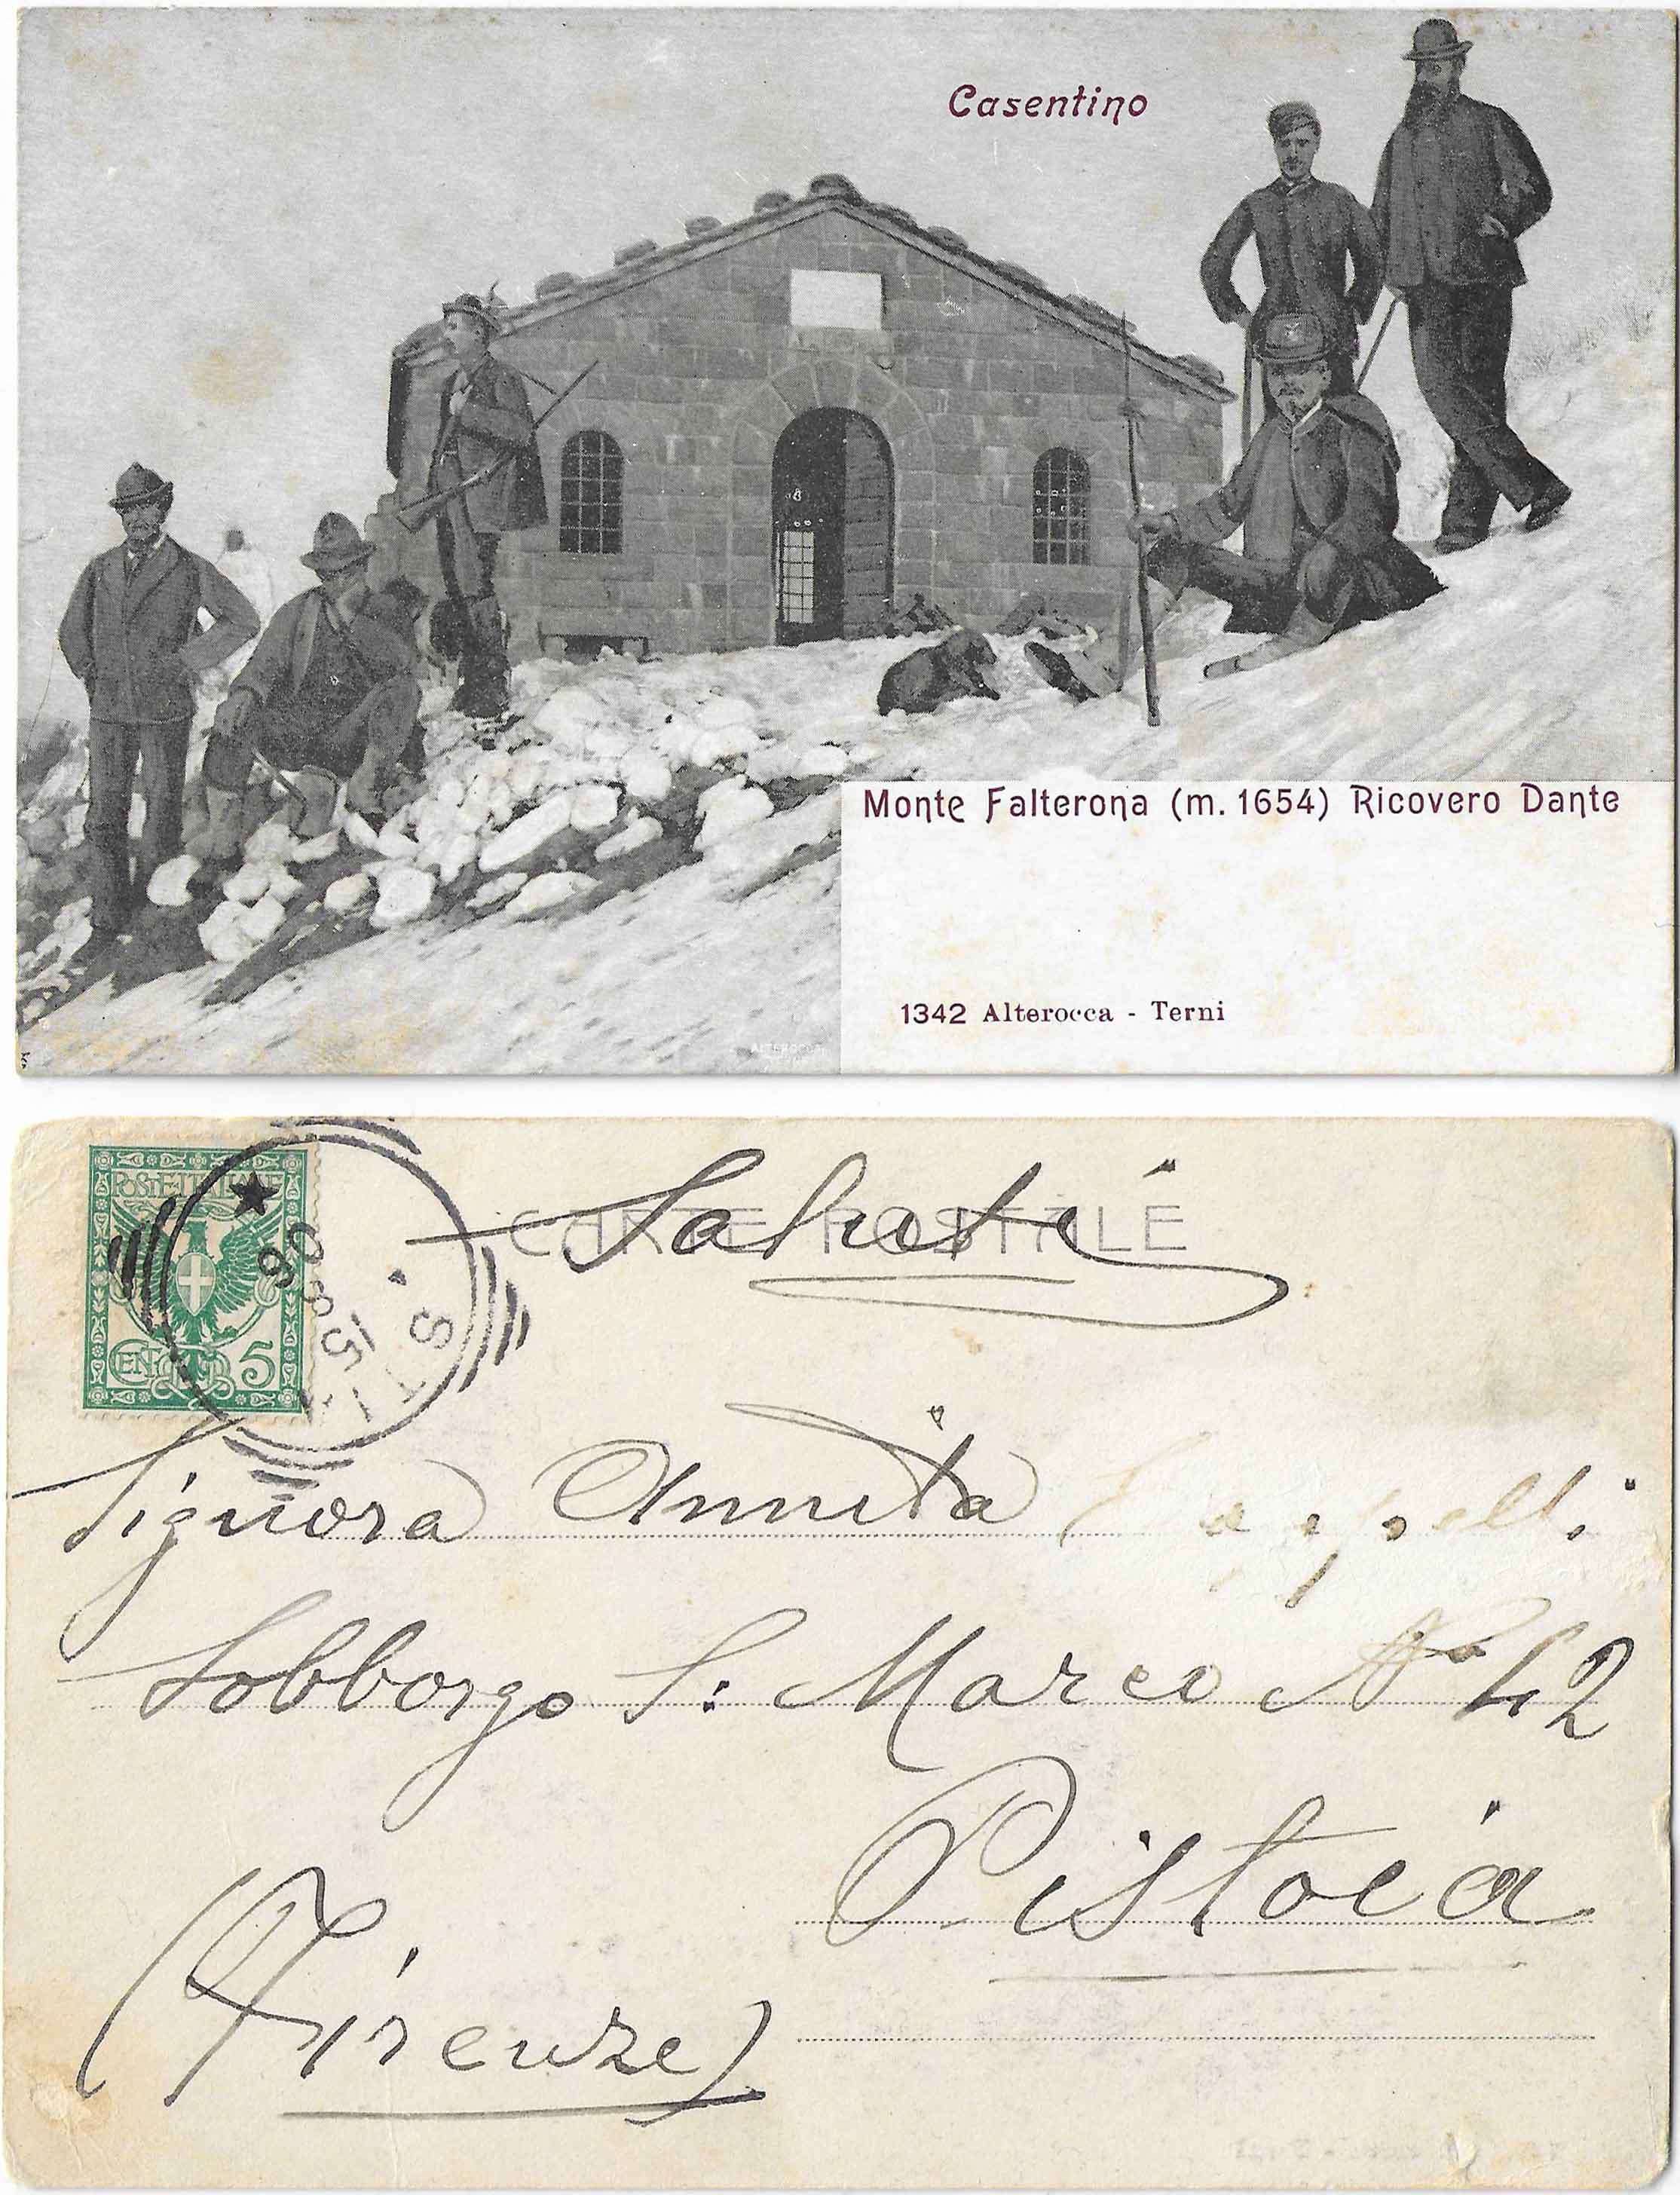 Casentino
Monte Falterona (m. 1654) Ricovero Dante
1342 Alterocca - Terni
ALTEROCCA
POSTE ITALIANE
CENT 5
STIA
15 8 06
CARTE POSTALE
Saluti
Signora Annita
Sobborgo S: Marco No 42
Pistoia
(Firenze)